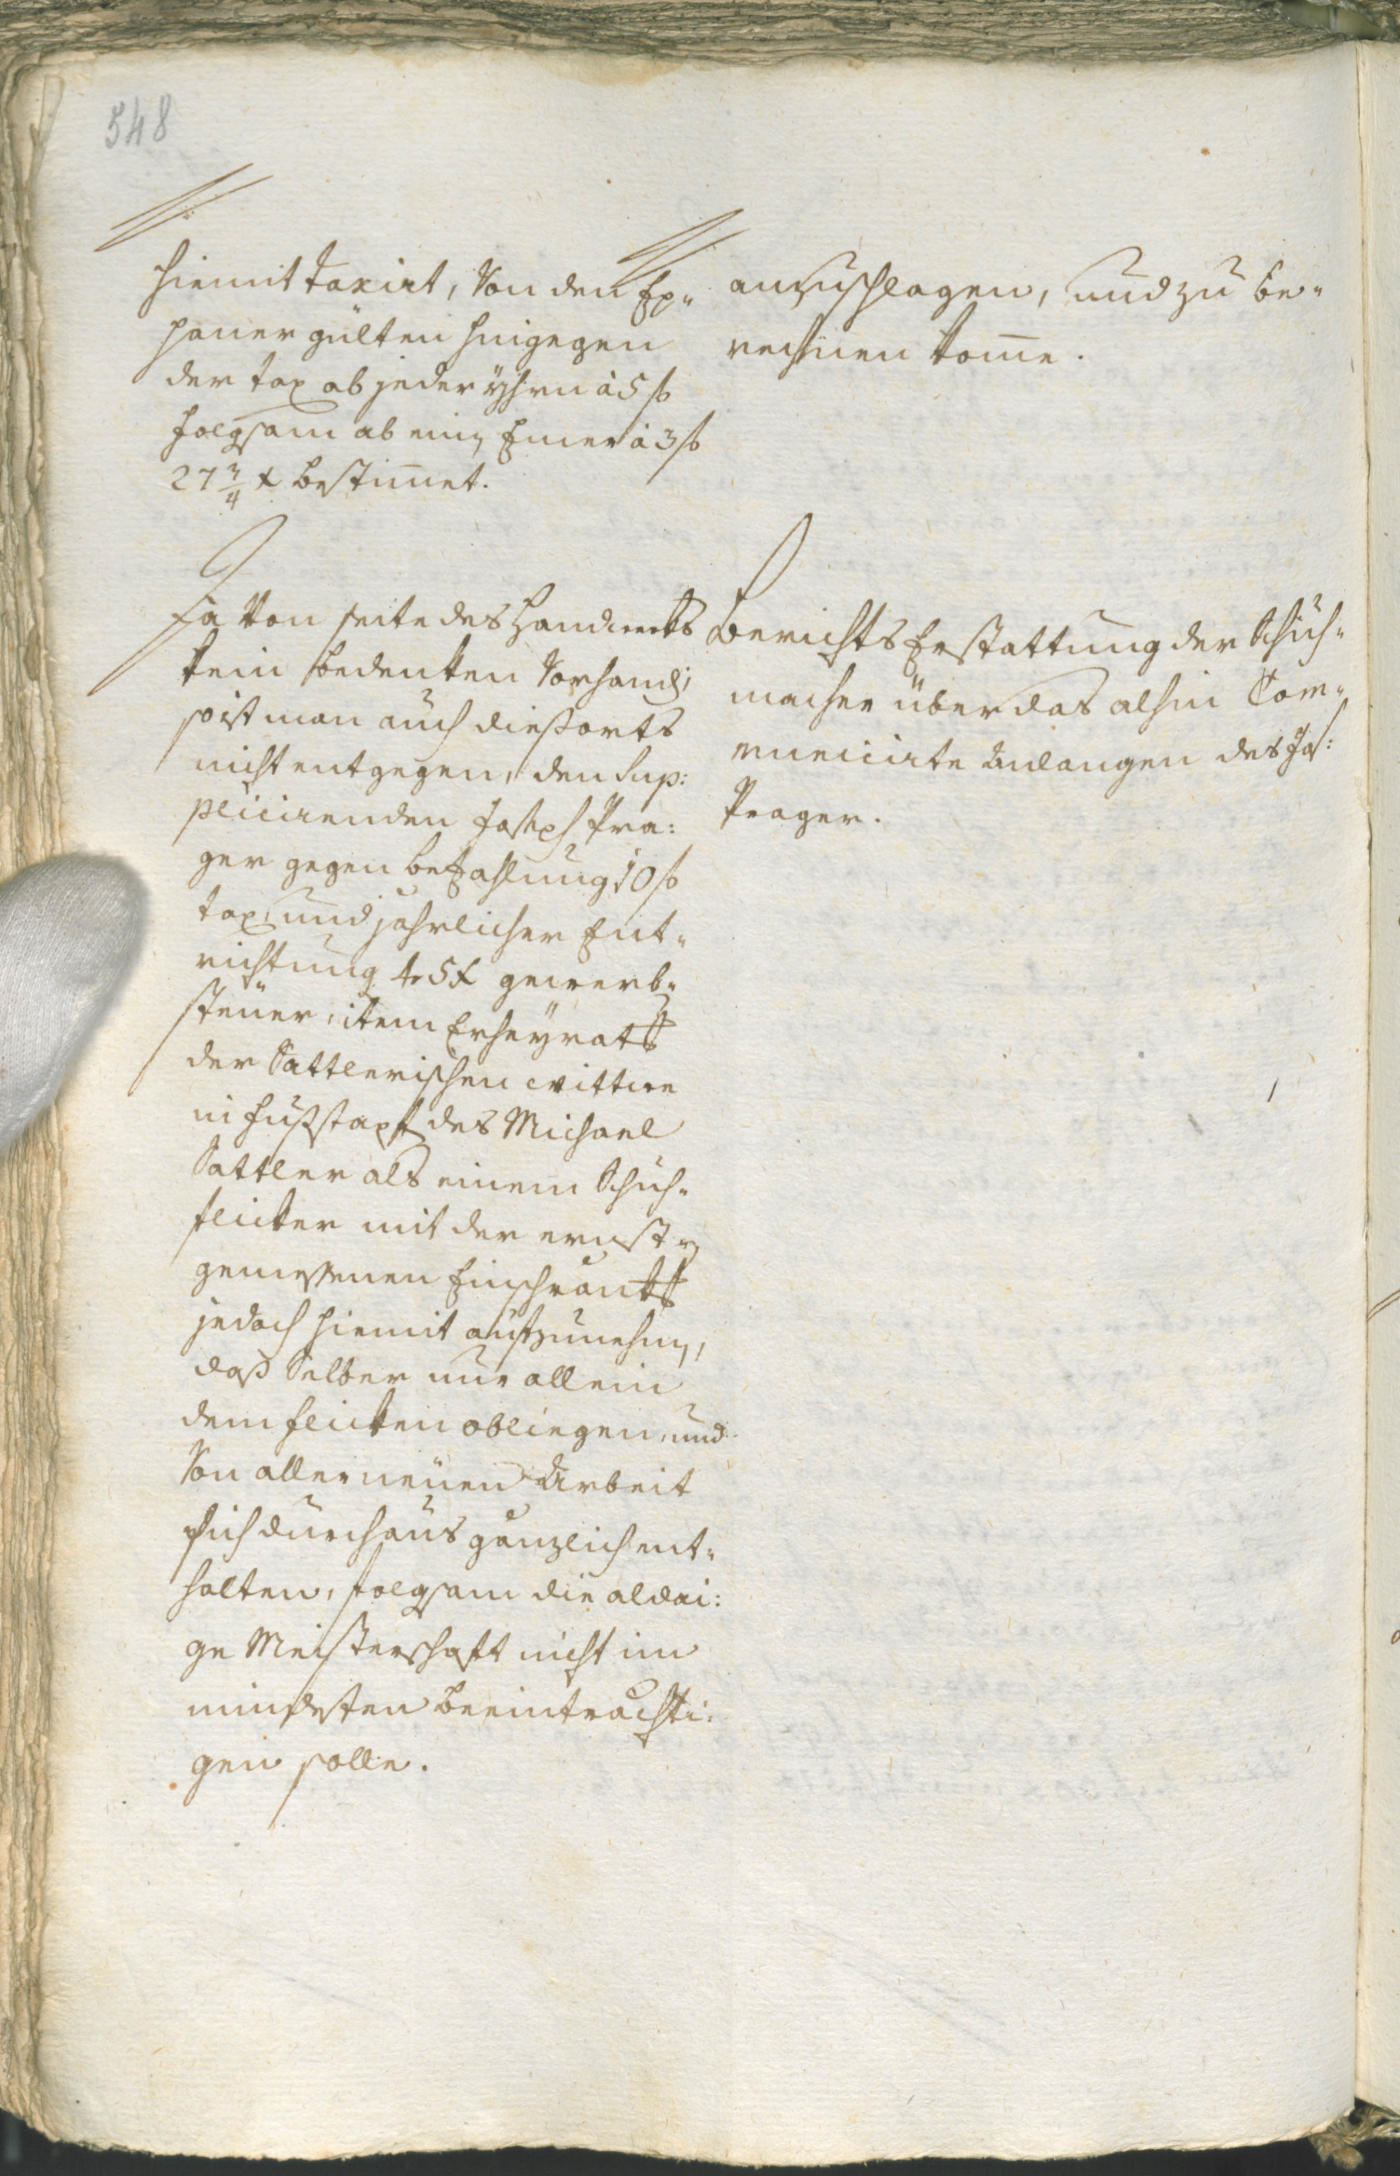 548
hiemit taxirt, Von den Ep„
paner gülten hingegen
der tax ab jeder yhrn à 5 f
folgsam ab einen Emer à 3 f
27 3/4 x bestimet.
Ja Von seite des Handwerks
kein bedenken Vorhanden,
so ist man auch diesorts
nicht entgegen, den Sup:
plicirenden Joseph Pra:
ger gegen bezahlung 10 f
tax, und jahrlicher Ent„
richtung 45 x gewerb„
steüer, item Erheyratung
der Sattlerischen wittwe
in fußstapfen des Michael
Sattler als einem Schuh„
flicker mit der ernst
gemessenen Einschrankung
jedoch hiemit aufzunehmen,
daß Selber nur allein
dem flicken obliegen, und
Von aller neüen Arbeit
sich durchaus ganzlich ent„
halten, folgsam die aldai:
ge Meisterschaft nicht im
mindesten beeintrachti:
gen solle.
anzuschlagen, und zu be„
rechnen kome.
Berichts Erstattung der Schuh„
macher über das alhin Com„
municirte Anlangen des Jos:
Prager.